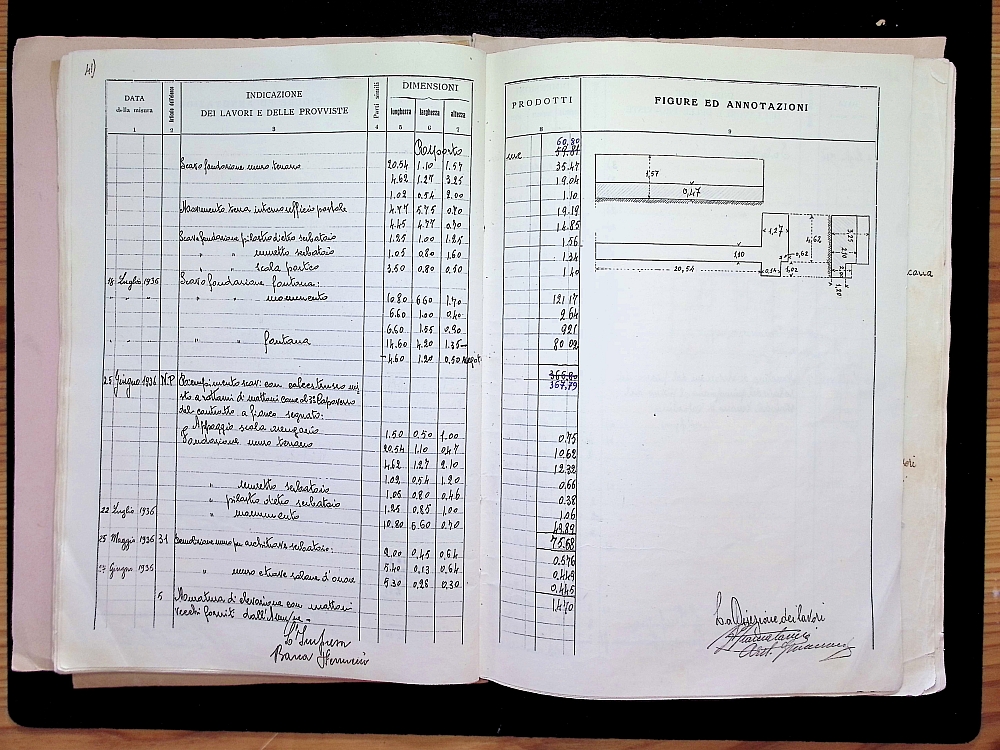 41)
DATA della misura
Articolo dell'elenco
INDICAZIONE DEI LAVORI E DELLE PROVVISTE
Parti simili
DIMENSIONI
lunghezza larghezza altezza
PRODOTTI
FIGURE ED ANNOTAZIONI
1 2 3 4 5 6 7 8 9
Rapporto mc 60,80
59.81
Scavo fondazione muro terreno 20.54 1.10 1.57 35.47
4.62 1.27 3.25 19.04
1.02 0.54 2.00 1.10
Movimento terra interno ufficio postale 4.77 5.75 0.70 19.19
4.45 4.77 0.70 14.85
Scavo fondazione pilastro dietro serbatoio 1.25 1.00 1.25 1.56
" " muretto serbatoio 1.05 0.80 1.60 1.34
" " scala portico 3.50 0.80 0.50 1.40
18 Luglio 1936 Scavo fondazione fontana:
" " " " monumento 10.80 6.60 1.70 121 17
6.60 1.00 0.40 2 64
6.60 1.55 0.90 9 21
" " " " fontana 14.60 4.20 1.35 80 02
4.60 1.20 0.50
366.80
367.79
25 Giugno 1936 N.P. Riempimento scavi con calcestruzzo mi
sto a rottami di mattoni come al 3° Capoverso
del contratto a fianco segnato:
Appoggio scala arengario 1.50 0.50 1.00 0.75
Fondazione muro terreno 20.54 1.10 0.47 10.62
4.62 1.27 2.10 12.32
1.02 0.54 1.20 0.66
" muretto serbatoio 1.05 0.80 0.46 0.38
" pilastro dietro serbatoio 1.25 0.85 1.00 1.06
22 Luglio 1936 " monumento 10.80 6.60 0.70 49.89
75.68
25 Maggio 1936 31 Demolizione muro per architrave serbatoio:
2.00 0.45 0.64 0.576
27 Giugno 1936 " muro e trave salone d'onore 5.40 0.13 0.64 0.449
5.30 0.28 0.30 0.445
1.470
5 Muratura di elevazione con mattoni
vecchi forniti dall'
L'Impresa
La Direzione dei lavori
1,57
0,47
1,27
4,62
3,25
2,10
1,10
0,62
20,54
0,54
1,02
1,20